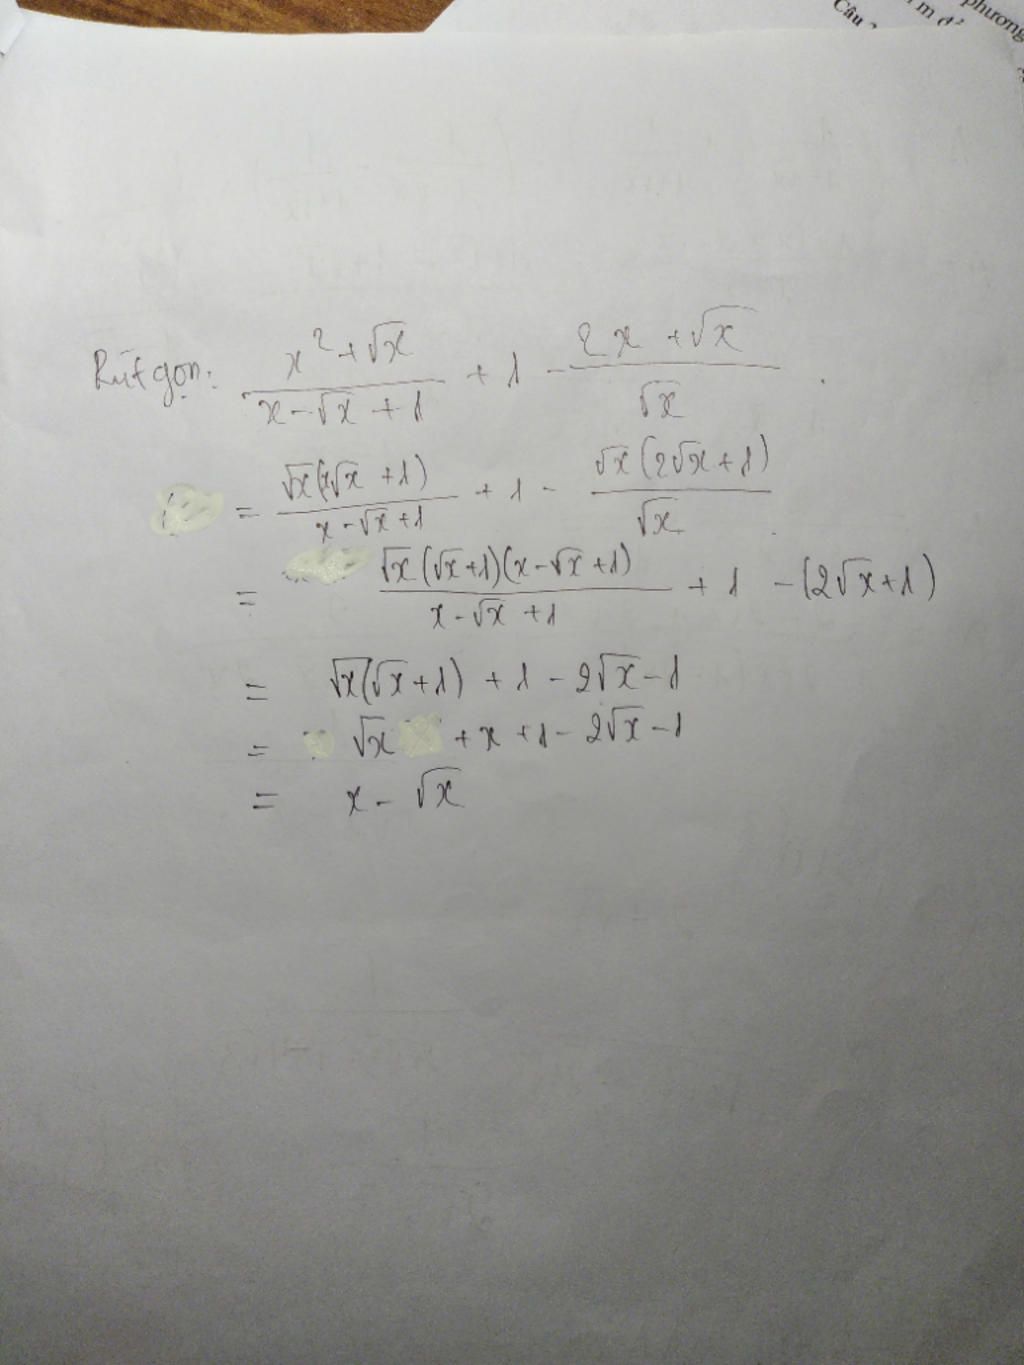 phương
m để
Câu
Rút gọn: \frac{x^2+\sqrt{x}}{x-\sqrt{x}+1} + 1 - \frac{2x+\sqrt{x}}{\sqrt{x}}
= \frac{\sqrt{x}(x\sqrt{x}+1)}{x-\sqrt{x}+1} + 1 - \frac{\sqrt{x}(2\sqrt{x}+1)}{\sqrt{x}}
= \frac{\sqrt{x}(\sqrt{x}+1)(x-\sqrt{x}+1)}{x-\sqrt{x}+1} + 1 - (2\sqrt{x}+1)
= \sqrt{x}(\sqrt{x}+1) + 1 - 2\sqrt{x} - 1
= \sqrt{x} + x + 1 - 2\sqrt{x} - 1
= x - \sqrt{x}